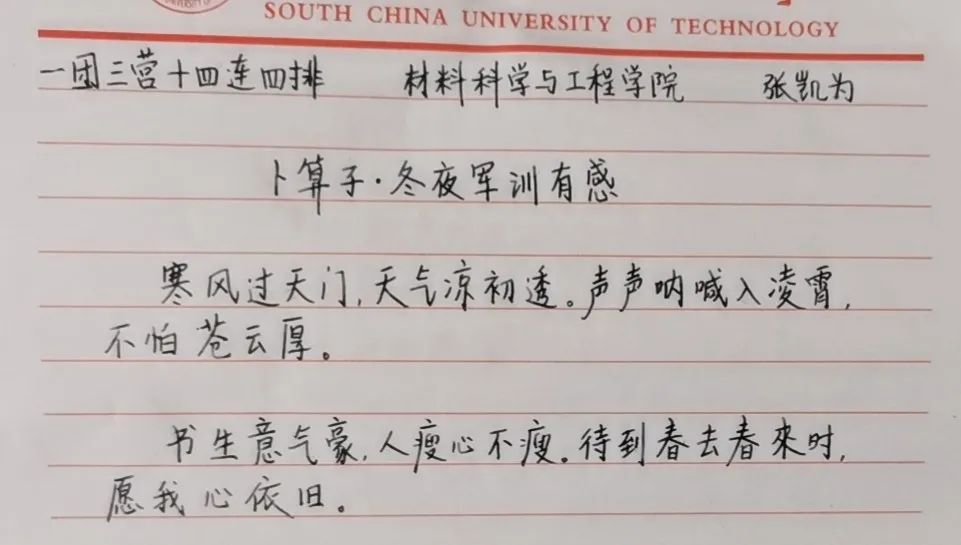 SOUTH CHINA UNIVERSITY OF TECHNOLOGY
一团三营十四连四排 材料科学与工程学院 张凯为
卜算子·冬夜军训有感
寒风过天门,天气凉初透。声声呐喊入凌霄,
不怕苍云厚。
书生意气豪,人瘦心不瘦。待到春去春來时,
愿我心依旧。